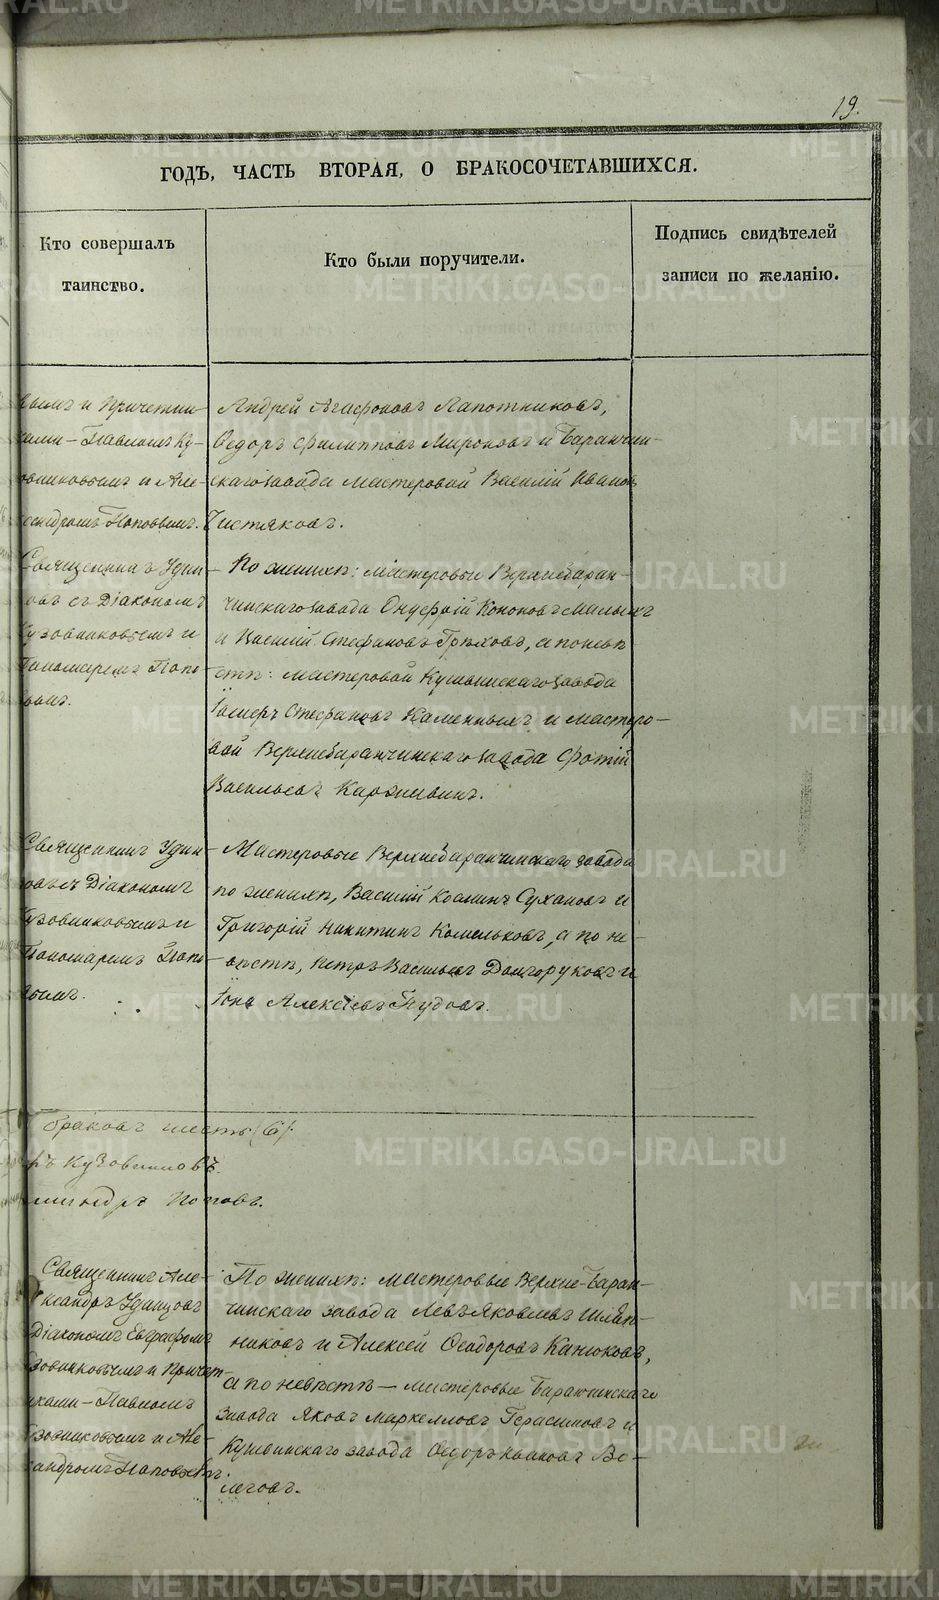 19.
ГОДЪ, ЧАСТЬ ВТОРАЯ, О БРАКОСОЧЕТАВШИХСЯ.
Кто совершалъ
таинство.
Кто были поручители.
Подпись свидѣтелей
записи по желанію.
вымъ и Причетни-
ками – Павломъ Ку-
зовниковымъ и Але-
ксандромъ Поповымъ.
Андрей Агафоновъ Лапотниковъ,
Ѳедоръ Филипповъ Мироновъ и Баранчин-
скаго завода мастеровой Василій Ивановъ
Чистяковъ.
Священникъ Удин-
цовъ съ Діакономъ
Кузовниковымъ и
Пономаремъ Попо-
вымъ.
По женихѣ: мастеровые Верхнебаран-
чинскаго завода Онуфрій Кононовъ Малыхъ
и Василій Стефановъ Грѣховъ, а по невѣ-
стѣ: мастеровой Кушвинскаго завода
Стефановъ Каменныхъ и мастеро-
вой Верхнебаранчинскаго завода Фотій
Васильевъ Каржавинъ.
Священникъ Удин-
цовъ съ Діакономъ
Кузовниковымъ и
Пономаремъ Попо-
вымъ.
Мастеровые Верхнебаранчинскаго завода
по женихѣ, Василій Козминъ Сухановъ и
Григорій Никитинъ Комельковъ, а по не-
вѣстѣ, Петръ Васильевъ Долгоруковъ и
Іона Алексѣевъ Пудовъ.
браковъ шесть (6).
ръ Кузовниковъ.
ександръ Поповъ.
Священникъ Але-
ксандръ Удинцовъ
Діакономъ Евграфомъ
Кузовниковымъ и Причет-
никами – Павломъ
Кузовниковымъ и Але-
ксандромъ Поповымъ.
По женихѣ: мастеровые Верхне-Баран-
чинскаго завода Левъ Яковлевъ Шляп-
никовъ и Алексѣй Ѳеодоровъ Канюковъ,
а по невѣстѣ – мастеровые Баранчинскаго
завода Яковъ Маркелловъ Герасимовъ и
Кушвинскаго завода Ѳедоръ Ивановъ Во-
леговъ.
METRIKI.GASO-URAL.RU